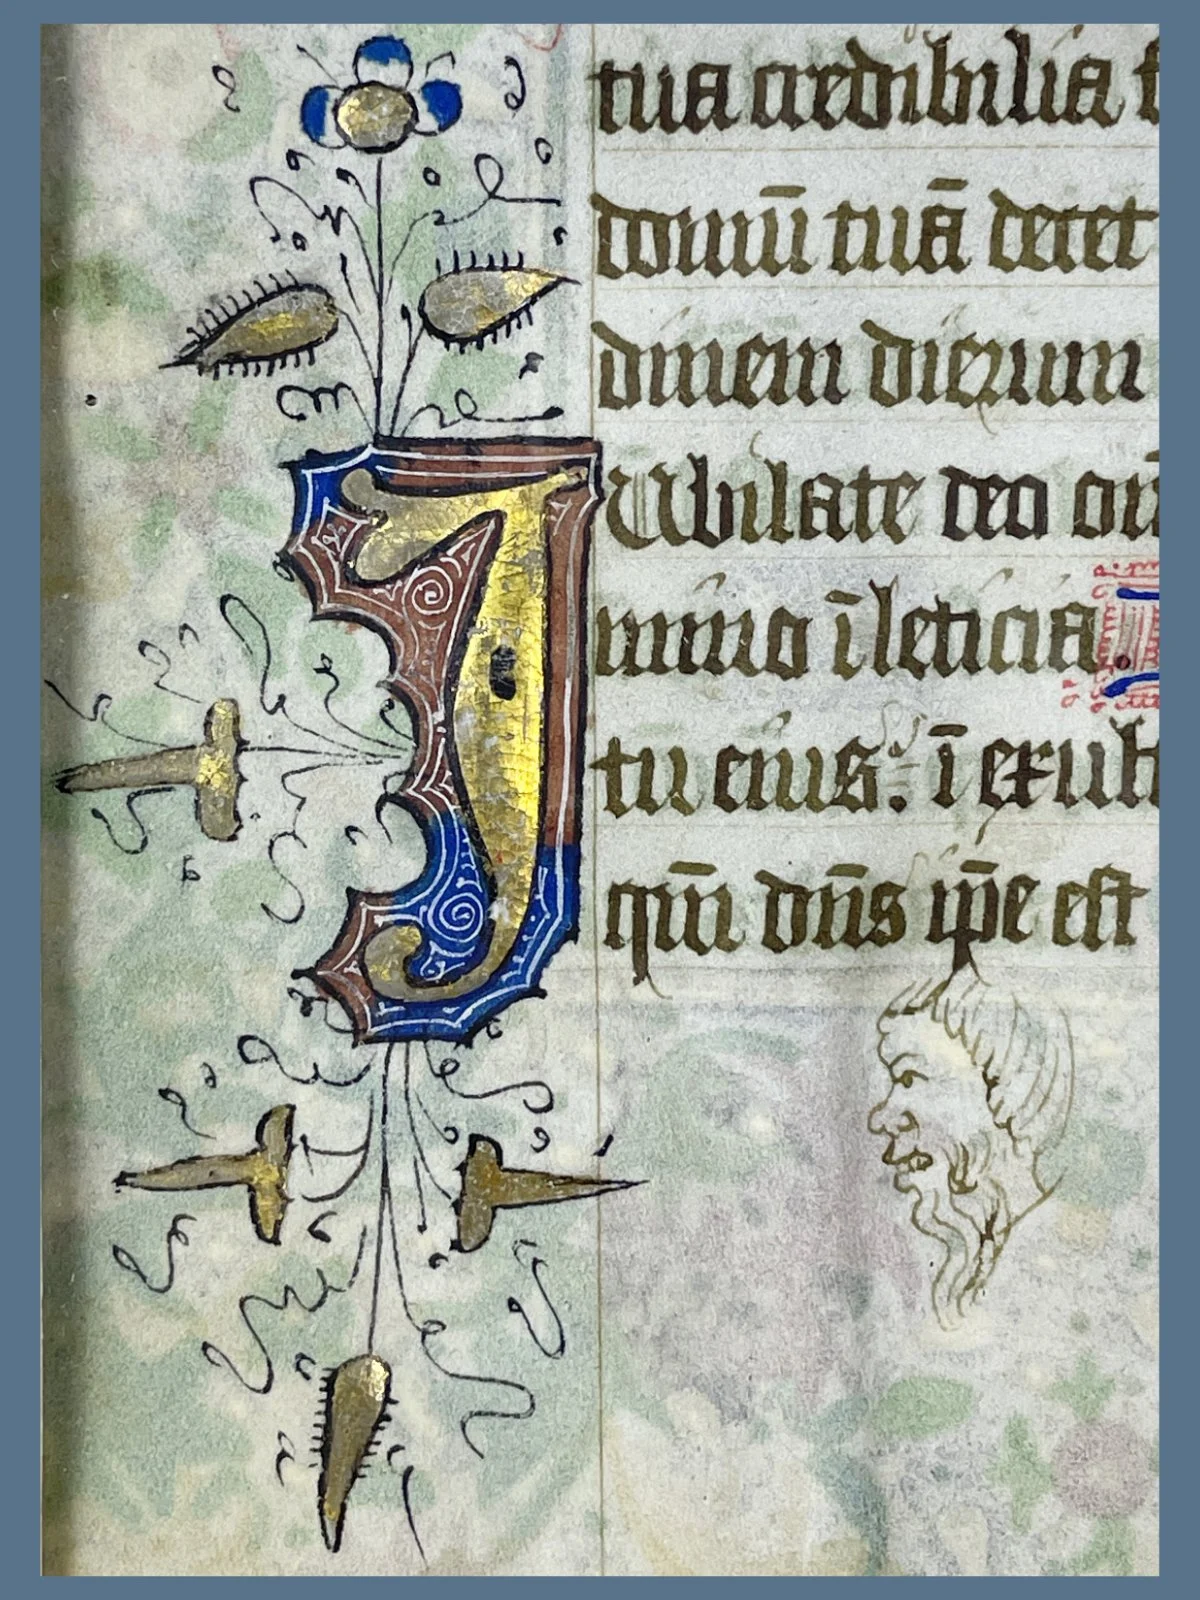 tua credibilia f
domū tuā decet
dinem dierum
Jubilate deo om
mino ī leticia.
tu eius. ī exult
qm̄ dn̄s ip̄e est